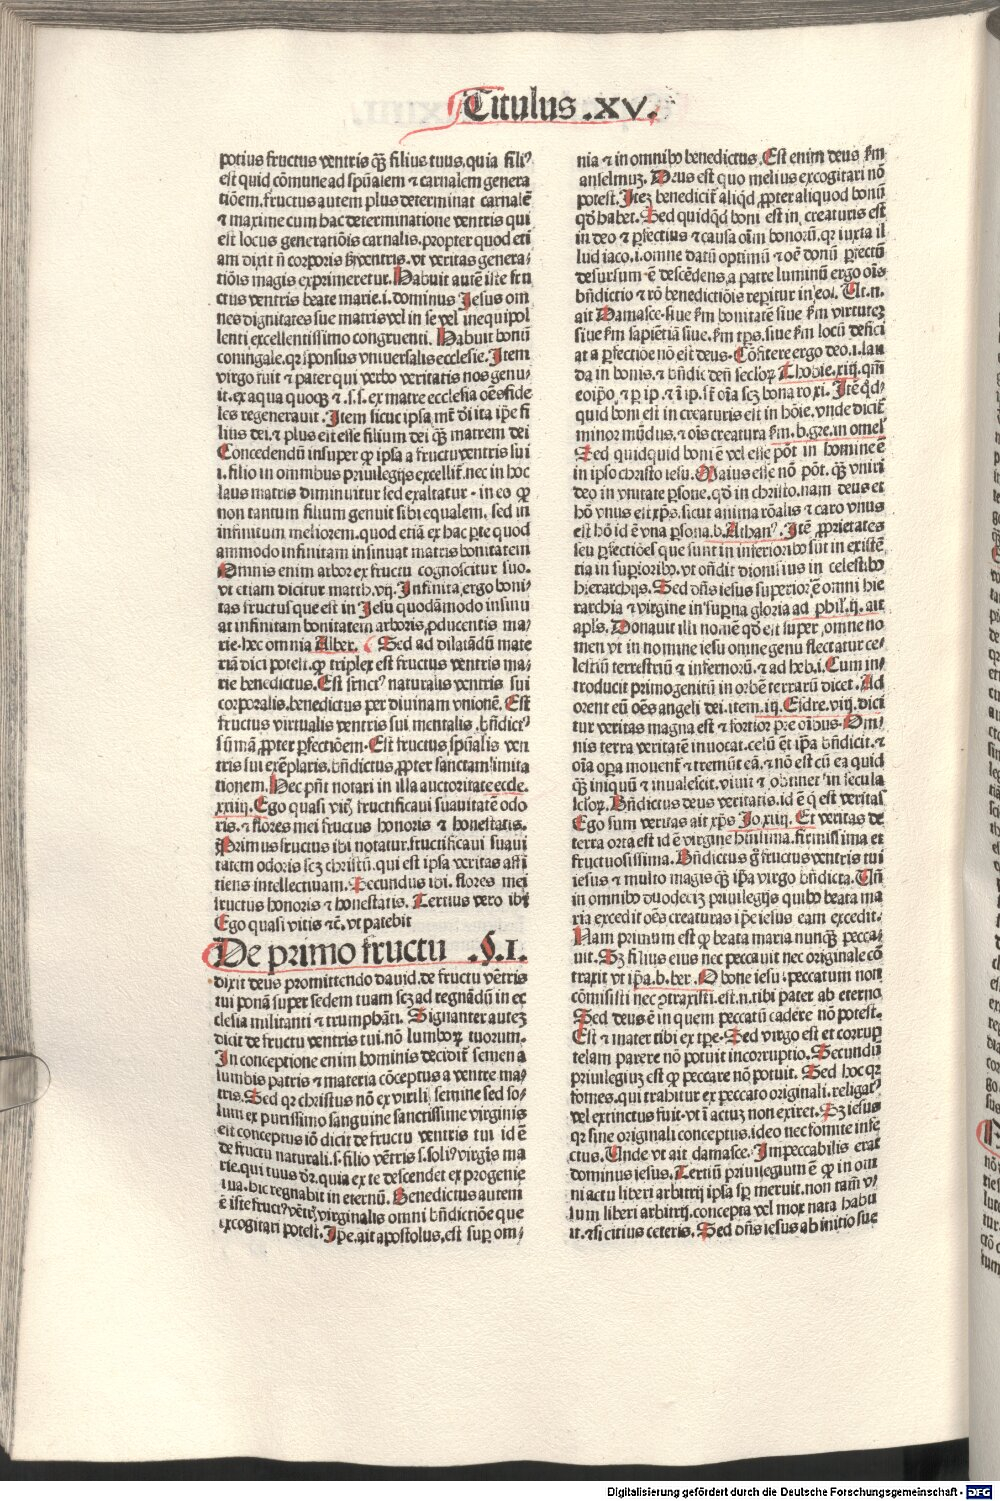 Titulus .XV.
potius fructus ventris qȝ̄ filius tuus. quia fili⁹
est quid cōmune ad spūalem ⁊ carnalem genera
tiōem. fructus autem plus determinat carnalē
⁊ maxime cum hac determinatione ventris qui
est locus generatiōis carnalis. propter quod eti
am dixit ñ corporis sꝫ ventris. vt veritas genera⸗
tiōis magis exprimeretur. Habuit autē iste fru
ctus ventris beate marie .i. dominus Jesus om
nes dignitates sue matris vel in se vel in equipol
lenti excellentissimo congruenti. Habuit bonū
coniugale. qꝛ sponsus vniuersalis ecclesie. Item
virgo fuit ⁊ pater qui verbo veritatis nos genu⸗
it. ex aqua quoqꝫ ⁊ .s.s. ex matre ecclesia oēs fide
les regenerauit. Item sicuc ipsa mr̄ dei ita ip̄e fi
lius dei. ⁊ plus est esse filium dei qȝ̄ matrem dei
Concedendū insuper ꝙ ipsa a fructu ventris sui
.i. filio in omnibus priuilegijs excellit. nec in hoc
laus matris diminuitur sed exaltatur . in eo ꝙ
non tantum filium genuit sibi equalem. sed in
infinitum meliorem. quod etiā ex hac ꝑte quod
ammodo infinitam insinuat matris bonitatem
Omnis enim arbor ex fructu cognoscitur suo.
vt etiam dicitur matth. vij. Infinita ergo boni⸗
tas fructus que est in Jesu quodāmodo insinu
at infinitam bonitatem arboris ꝓducentis ma⸗
rie. hec omnia Alber. Sed ad dilatādū mate
riā dici potest. ꝙ triplex est fructus ventris ma⸗
rie benedictus. Est fruct⁹ naturalis ventris sui
corporalis. benedictus per diuinam vnionē. Est
fructus virtualis ventris sui mentalis . bñdict⁹
sūmā ꝓpter ꝑfectiōem. Est fructus spūalis ven
tris sui exēplaris. bñdictus ꝓpter sanctam imita
tionem. Hec pn̄t notari in illa auctoritate eccle.
xxiiij. Ego quasi vit⁹ fructificaui suauitatē odo
ris. ⁊ flores mei fructus honoris ⁊ honestatis.
Primus fructus ibi notatur. fructificaui suaui
tatem odoris scꝫ christū. qui est ipsa veritas affi
ciens intellectiuam. Secundus ibi. flores mei
fructus honoris ⁊ honestatis. Tertius vero ibi
Ego quasi vitis ⁊c̄. vt patebit
De primo fructu .§.I.
dixit deus promittendo dauid. de fructu vētris
tui ponā super sedem tuam scꝫ ad regnādū in ec
clesia militanti ⁊ triumphāti. Signanter autez
dicit de fructu ventris tui. nō lumboꝝ tuorum.
In conceptione enim hominis decidit semen a
lumbis patris ⁊ materia cōceptus a ventre ma⸗
tris. Sed qꝛ christus nō ex virili semine sed so⸗
lum ex purissimo sanguine sanctissime virginis
est conceptus iō dicit de fructu ventris tui id ē
de fructu naturali. s. filio vētris s. soli⁹ virgīs ma
rie. qui tuus dꝛ. quia ex te descendet ex progenie
tua. hic regnabit in eternū. Benedictus autem
ē iste fruct⁹ vētrꝭ virginalis omni bñdictiōe que
excogitari potest. Ip̄e. ait apostolus. est suꝑ om⸗
nia ⁊ in omnibo benedictus. Est enim deus ẜm
anselmuꝫ. Deus est quo melius excogitari nō
potest. Itez benedicit᷑ aliqd ꝓpter aliquod bonū
qd habet. Sed quidqd boni est in creaturis est
in deo ⁊ ꝑfectius ⁊ causa oīm bonorū. qꝛ iuxta il
lud iaco. i. omne datū optimū ⁊ oē donū ꝑfectū
desursum ē descēdens a patre luminū ergo oīs
bñdictio ⁊ rō benedictiōis reꝑitur in eo. Vt. n.
ait Damasce. siue ẜm bonitatē siue ẜm virtutez
siue ẜm sapiētiā siue. ẜm tps. siue ẜm locū defici
at a ꝑfectiōe nō est deus. Cōfitere ergo deo .i. lau
da in bonis. ⁊ bñdic deū secloꝝ Thobie. xiij. qm̄
ex ipo. ⁊ ꝑ ip. ⁊ ī ip. st̄ oīa scꝫ bona ro xi. Itē qd⸗
quid boni est in creaturis est in hōie. vnde dicit᷑
minor mūdus. ⁊ oīs creatura ẜm. b. gre. in omel
Sed quidquid boni ē vel esse pōt in homine ē
in ipso christo iesu. Maius esse nō pōt. qȝ̄ vniri
deo in vnitate ꝑsone. qd in christo. nam deus et
hō vnus est xp̄s. sicut anima rōalis ⁊ caro vnus
est hō id ē vna ꝑsona. b. Athan⁹. Itē ꝓprietates
seu ꝑfectiōes que sunt in inferioribo sūt in existē
tia in superioribo. vt oñdit dionisius in celestibo
hierarchijs. Sed dñs iesus superior ē omni hie
rarchia ⁊ virgine in suꝑna gloria ad phil. ij. ait
apls. Donauit illi nomē qd est super omne no
men vt in nomine iesu omne genu flectatur ce⸗
lestiū terrestriū ⁊ infernorū. ⁊ ad heb. i. Cum in⸗
troducit primogenitū in orbē terrarū dicet. Ad
orent eū oēs angeli dei. item. iij. Esdre. viij. dici
tur veritas magna est ⁊ fortior p̄re oībus. Om⸗
nis terra veritatē inuocat. celū et ip̄a bñdicit. ⁊
oīa oꝑa mouent᷑ ⁊ tremūt eā. ⁊ nō est cū ea quid
qȝ̄ iniquū ⁊ inualescit. viuit ⁊ obtinet in secula
scloꝝ. Bñdictus deus veritatis. id ē q̄ est veritas
Ego sum veritas ait xp̄s Jo. xiiij. Et veritas de
terra orta est id ē virgine hūilima. firmissima et
fructuosissima. Bñdictus g̊ fructus ventris tui
iesus ⁊ multo magis qȝ̄ ip̄a virgo bñdicta. Vñ
in omnibo duodeciꝫ priuilegijs quibo beata ma
ria excedit oēs creaturas ip̄e iesus eam excedit.
Nam primum est ꝙ beata maria nunqȝ̄ pecca⸗
uit. Sꝫ filius eius nec peccauit nec originale cō
traxit vt ip̄a. b. ber. O bone iesu peccatum non
cōmisisti nec ꝯtraxisti. est. n. tibi pater ab eterno
Sed deus ē in quem peccatū cadere nō potest.
Est ⁊ mater tibi ex tꝑe. Sed virgo est et corrup
telam parere nō potuit incorruptio. Secundū
priuilegiuꝫ est ꝙ peccare nō potuit. Sed hoc qꝛ
fomes. qui trahitur ex peccato originali. religat⁹
vel extinctus fuit. vt ī actuꝫ non exiret. Sꝫ iesus
qꝛ sine originali conceptus. ideo nec fomite infe
ctus. Unde vt ait damasce. Impeccabilis erat
dominus iesus. Tertiū priuilegium ē ꝙ in om
ni actu liberi arbitrij ipsa sꝑ meruit. non tam̄ v⸗
sum liberi arbitrij. concepta vel mox nata habu
it. ⁊ si citius ceteris. Sed dñs iesus ab initio sue
Digitalisierung gefördert durch die Deutsche Forschungsgemeinschaft - DFG